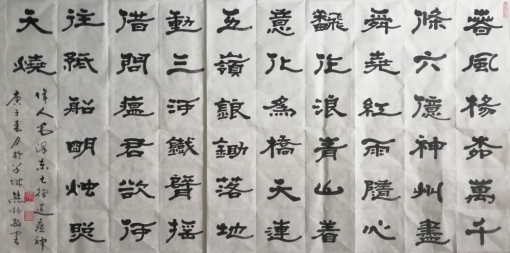 春風楊柳萬千
條六億神州盡
舜堯紅雨隨心
翻作浪青山着
意化為橋天連
五嶺銀鋤落地
動三河鐵臂搖
借問瘟君欲何
往紙船明燭照
天燒
偉人毛澤東七律送瘟神
庚子夏月於羊城熊書